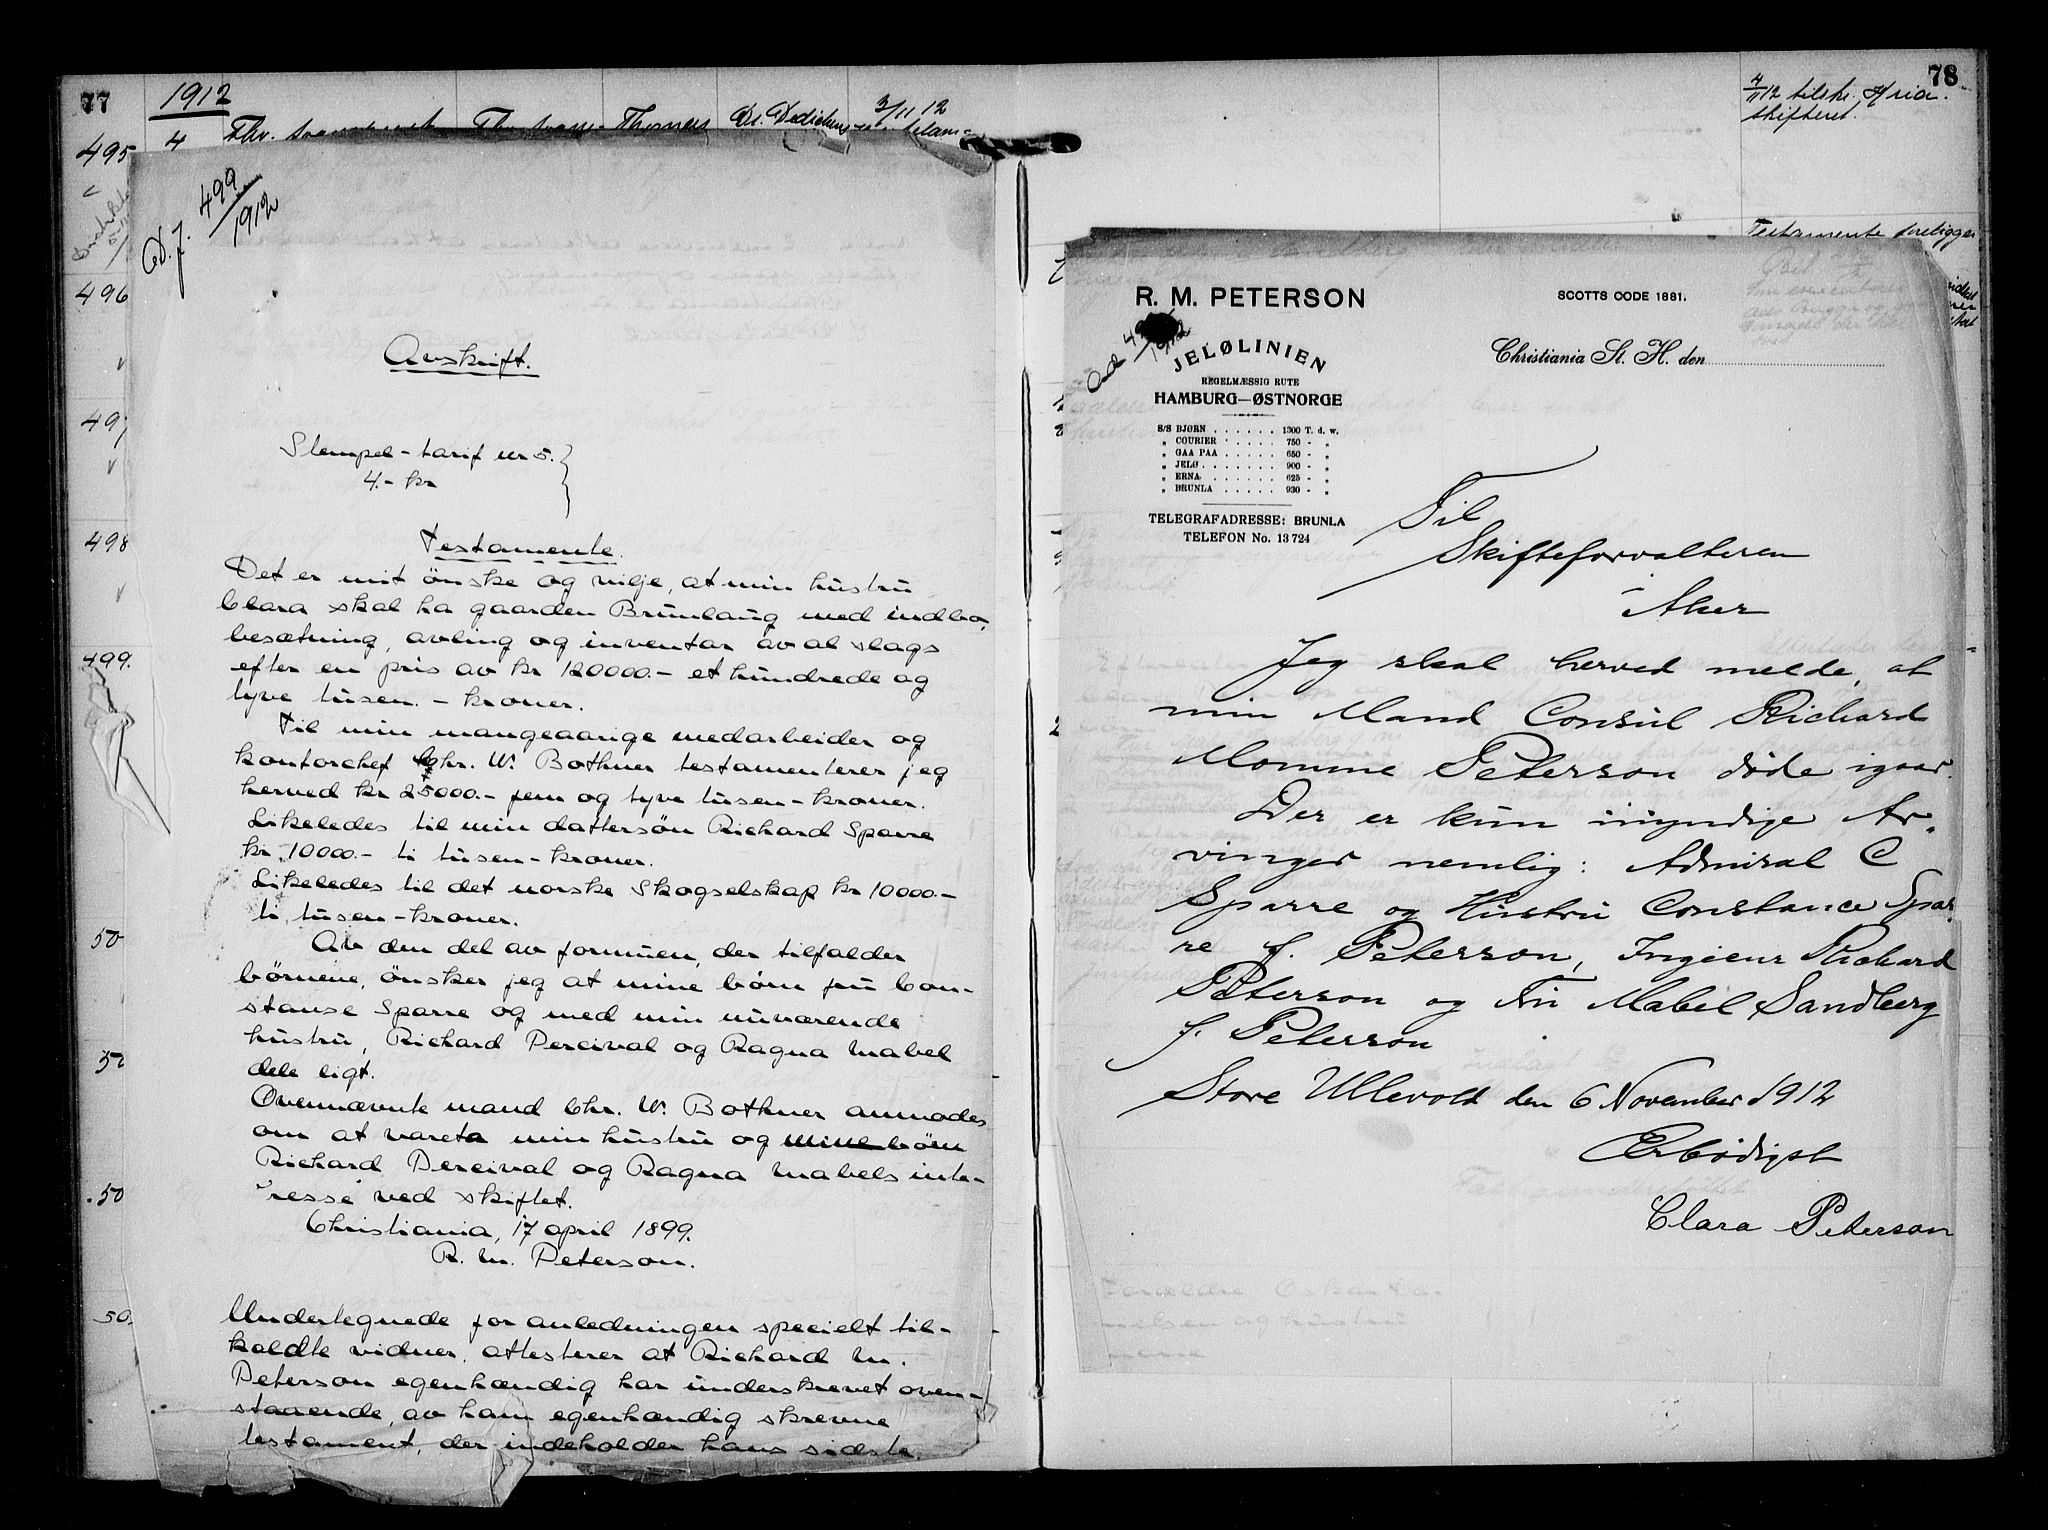 77
1912
495
4
Dr. Dedichen
3/11 12
496
497
498
499.
50
50
50
50.
D. J. 499/1912
Avskrift.
Stempel-tarif nr 5.
4.- kr
Testamente.
Det er mit ønske og vilje, at min hustru
Clara skal ha gaarden Brunlaug med indbo,
besætning, avling og inventar av al slags
efter en pris av kr 120000.- et hundrede og
tyve tusen - kroner.
Til min mangeaarige medarbeider og
kontorchef Chr. W. Bothner testamenterer jeg
herved kr 25000.- fem og tyve tusen - kroner.
Likeledes til min dattersøn Richard Sparre
kr. 10000.- ti tusen - kroner.
Likeledes til det norske Skogselskap kr 10000.-
ti tusen - kroner.
Av den del av formuen, der tilfalder
børnene, ønsker jeg at mine børn fru Con-
stanse Sparre og med min nuværende
hustru, Richard Percival og Ragna Mabel
dele ligt.
Ovennævnte mand Chr. W. Bothner anmodes
om at vareta min hustru og mine børn
Richard Percival og Ragna Mabels inte-
resse ved skiftet.
Christiania, 17 april 1899.
R. M. Peterson.
Undertegnede for anledningen specielt til-
kaldte vidner, attesterer at Richard M.
Peterson egenhændig har underskrevet oven-
staaende, av ham egenhændig skrevne
testament, der indeholder hans sidste
78
4/11 12 tilskr. Aria.
skifteret.
Testamente foreligger
R. M. PETERSON
SCOTTS CODE 1881.
JELØLINIEN
REGELMÆSSIG RUTE
HAMBURG—ØSTNORGE
Christiania St. H. den
S/S BJØRN . . . . . . 1300 T. d. w.
„ COURIER . . . . . 750 - „
„ GAA PAA . . . . . 650 - „
„ JELØ . . . . . . . 900 - „
„ ERNA . . . . . . . 625 - „
„ BRUNLA . . . . . . 930 - „
TELEGRAFADRESSE: BRUNLA
TELEFON No. 13724
Til
Skifteforvalteren
i Aker
Jeg skal herved melde, at
min Mand Consul Richard
Momme Peterson døde igaar.
Der er kun myndige Ar-
vinger nemlig: Admiral C
Sparre og Hustru Constance Spar-
re f. Peterson, Ingiønr Richard
Peterson og Fru Mabel Sandberg
f. Peterson
Store Ullevold den 6 November 1912
Ærbødigst
Clara Peterson